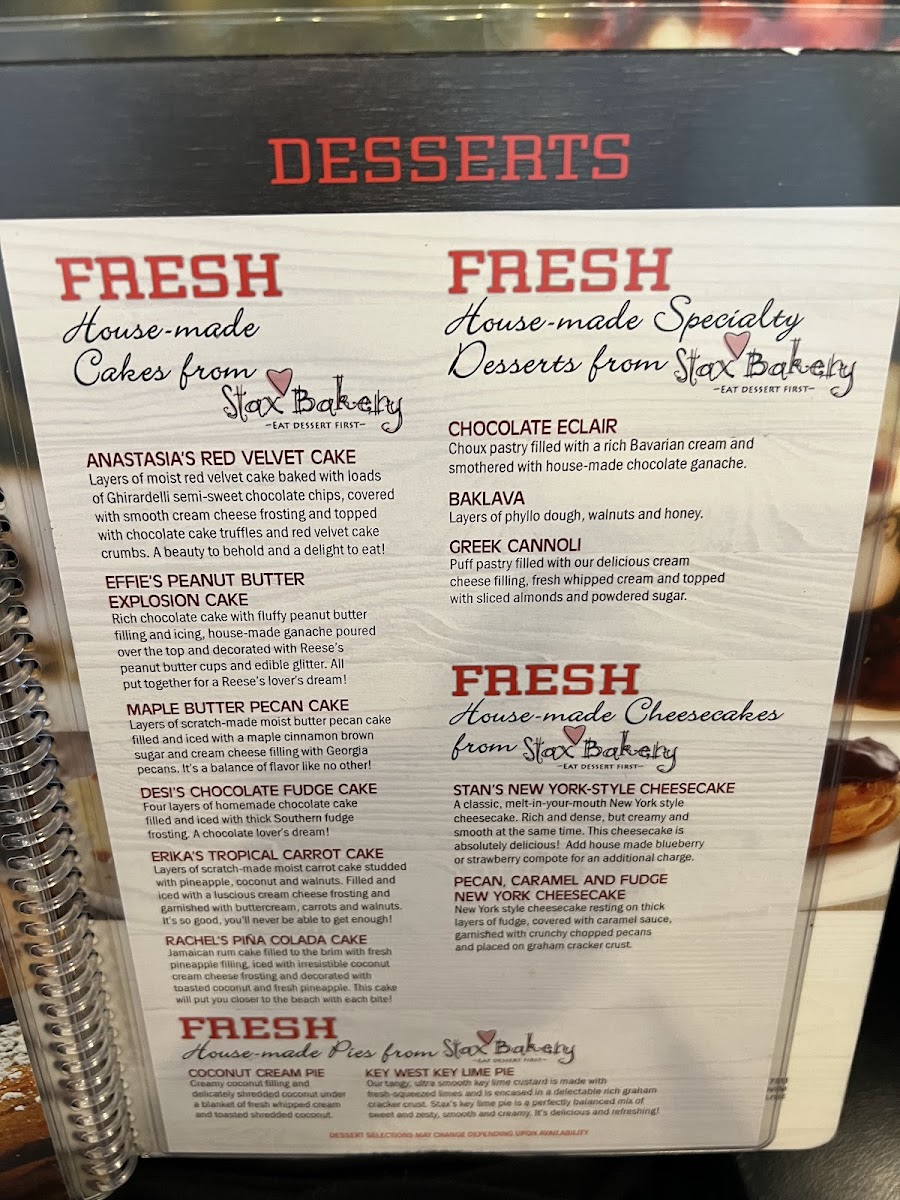 DESSERTS
FRESH
House-made
Cakes from
Stax Bakery
-EAT DESSERT FIRST-
ANASTASIA'S RED VELVET CAKE
Layers of moist red velvet cake baked with loads
of Ghirardelli semi-sweet chocolate chips, covered
with smooth cream cheese frosting and topped
with chocolate cake truffles and red velvet cake
crumbs. A beauty to behold and a delight to eat!
EFFIE'S PEANUT BUTTER
EXPLOSION CAKE
Rich chocolate cake with fluffy peanut butter
filling and icing, house-made ganache poured
over the top and decorated with Reese's
peanut butter cups and edible glitter. All
put together for a Reese's lover's dream!
MAPLE BUTTER PECAN CAKE
Layers of scratch-made moist butter pecan cake
filled and iced with a maple cinnamon brown
sugar and cream cheese filling with Georgia
pecans. It's a balance of flavor like no other!
DESI'S CHOCOLATE FUDGE CAKE
Four layers of homemade chocolate cake
filled and iced with thick Southern fudge
frosting. A chocolate lover's dream!
ERIKA'S TROPICAL CARROT CAKE
Layers of scratch-made moist carrot cake studded
with pineapple, coconut and walnuts. Filled and
iced with a luscious cream cheese frosting and
garnished with buttercream, carrots and walnuts.
It's so good, you'll never be able to get enough!
RACHEL'S PIÑA COLADA CAKE
Jamaican rum cake filled to the brim with fresh
pineapple filling, iced with irresistible coconut
cream cheese frosting and decorated with
toasted coconut and fresh pineapple. This cake
will put you closer to the beach with each bite!
FRESH
House-made Specialty
Desserts from Stax Bakery
-EAT DESSERT FIRST-
CHOCOLATE ECLAIR
Choux pastry filled with a rich Bavarian cream and
smothered with house-made chocolate ganache.
BAKLAVA
Layers of phyllo dough, walnuts and honey.
GREEK CANNOLI
Puff pastry filled with our delicious cream
cheese filling, fresh whipped cream and topped
with sliced almonds and powdered sugar.
FRESH
House-made Cheesecakes
from Stax Bakery
-EAT DESSERT FIRST-
STAN'S NEW YORK-STYLE CHEESECAKE
A classic, melt-in-your-mouth New York style
cheesecake. Rich and dense, but creamy and
smooth at the same time. This cheesecake is
absolutely delicious! Add house made blueberry
or strawberry compote for an additional charge.
PECAN, CARAMEL AND FUDGE
NEW YORK CHEESECAKE
New York style cheesecake resting on thick
layers of fudge, covered with caramel sauce,
garnished with crunchy chopped pecans
and placed on graham cracker crust.
FRESH
House-made Pies from Stax Bakery
-EAT DESSERT FIRST-
COCONUT CREAM PIE
Creamy coconut filling and
delicately shredded coconut under
a blanket of fresh whipped cream
and toasted shredded coconut.
KEY WEST KEY LIME PIE
Our tangy, ultra smooth key lime custard is made with
fresh-squeezed limes and is encased in a delectable rich graham
cracker crust. Stax's key lime pie is a perfectly balanced mix of
sweet and zesty, smooth and creamy. It's delicious and refreshing!
DESSERT SELECTIONS MAY CHANGE DEPENDING UPON AVAILABILITY